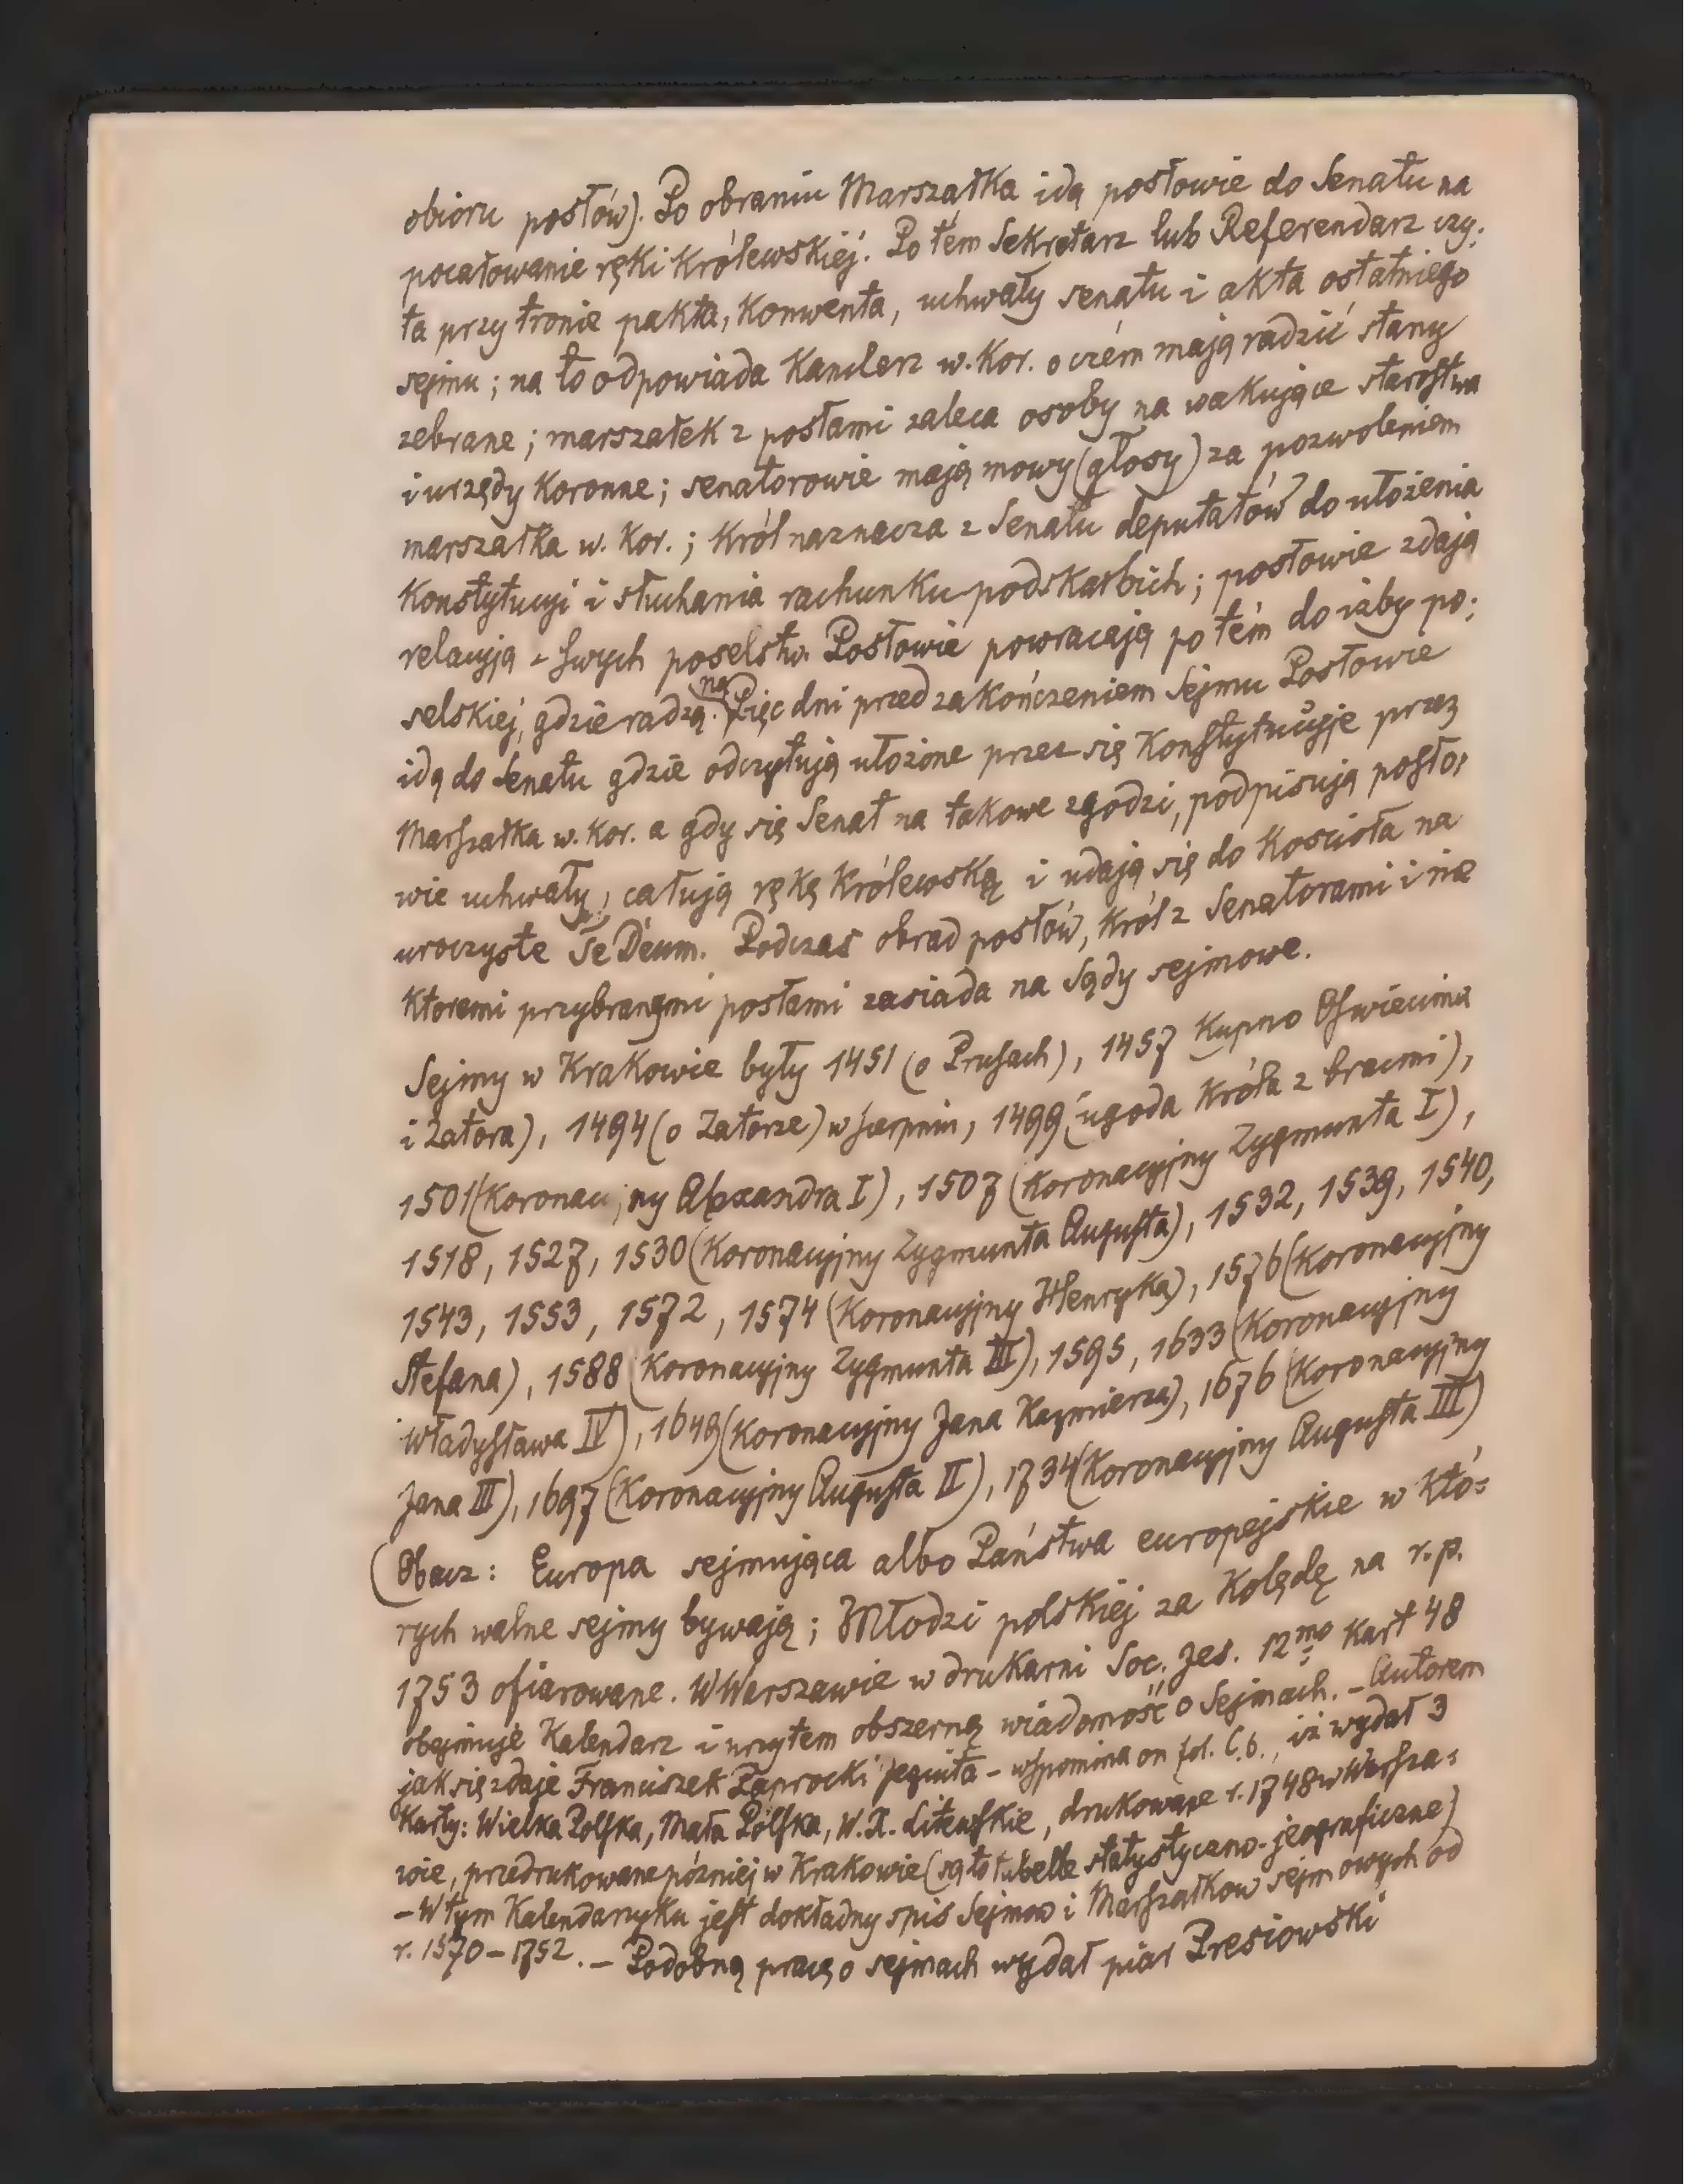 obioru posłów). Po obraniu Marszałka idą posłowie do Senatu na
pocałowanie ręki Królewskiéj. Po tem Sekretarz lub Referendarz czy:
ta przy tronie pakta, Konwenta, uchwały senatu i akta ostatniego
sejmu; na to odpowiada Kanclerz w. Kor. o czém mają radzić stany
zebrane; marszałek z posłami zaleca osoby na wakujące starostwa
i urzędy Koronne; senatorowie mają mowy (głosy) za pozwoleniem
marszałka w. Kor.; Król naznacza z Senatu deputatów do ułożenia
Konstytucyi i słuchania rachunku podskarbich; posłowie zdają
relacyją z swych poselstw. Posłowie powracają po tém do izby po:
selskiej, gdzie radzą. na Pięc dni przed zakończeniem Sejmu Posłowie
idą do Senatu gdzie odczytują ułożone przez się Konstytucyje przez
Marszałka w. Kor. a gdy się Senat na takowe zgodzi, podpisują posło:
wie uchwały, całują rękę Królewską i udają się do Kościoła na
uroczyste Te Deum. Podczas obrad posłów, Król z Senatorami i nie
Ktoremi przybranymi posłami zasiada na Sądy sejmowe.
Sejmy w Krakowie były 1451 (o Prusach), 1457 Kupno Oswiecima
i Zatora), 1494 (o Zatorze) w sierpniu, 1499 (ugoda Króla z bracmi),
1501 (Koronacyjny Alexandra I), 1507 (Koronacyjny Zygmunta I),
1518, 1527, 1530 (Koronacyjny Zygmunta Augusta), 1532, 1539, 1540,
1543, 1553, 1572, 1574 (Koronacyjny Henryka), 1576 (Koronacyjny
Stefana), 1588 (Koronacyjny Zygmunta III), 1595, 1633 (Koronacyjny
Władysława IV), 1649 (Koronacyjny Jana Kazmierza), 1676 (Koronacyjny
Jana III), 1697 (Koronacyjny Augusta II), 1734 (Koronacyjny Augusta III)
(Obacz: Europa sejmująca albo Państwa europejskie w Któ:
rych walne sejmy bywają; Młodzi polskiéj za Kolędę na r. p.
1753 ofiarowane. W Warszawie w drukarni Soc. Jes. 12mo Kart 48
obejmuje Kalendarz i przytem obszerną wiadomość o Sejmach. – Autorem
jak się zdaje Franciszek Paprocki jezuita – wspomina on fol. C.6., iż wydał 3
Karty: Wielka Polska, Mała Polska, W. X. Litewskie, drukowane r. 1748 w Warsza:
wie, przedrukowane później w Krakowie (są to tabelle statystyczno-jeograficzne)
– W tym Kalendarzyku jest dokładny spis Sejmow i Marszałkow sejmowych od
r. 1570 – 1752. – Podobną pracę o sejmach wydał pijar Presiowski